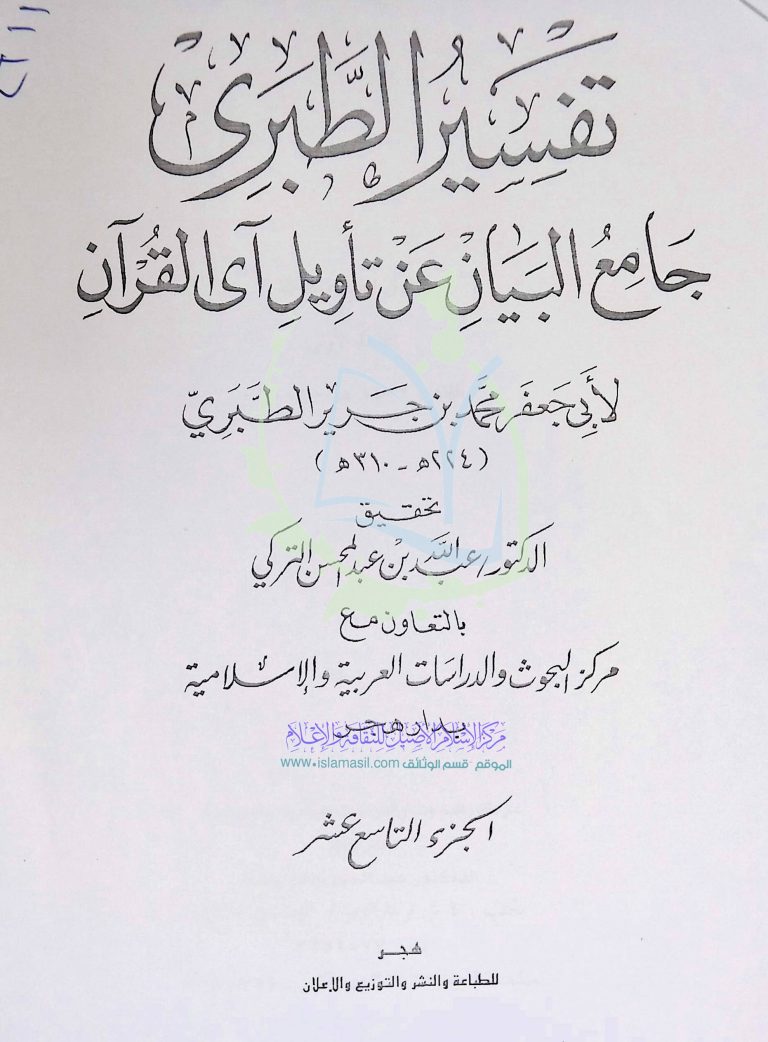 تَفسِيرُ الطَّبَرِى
جَامِعُ البَيَانِ عَنْ تَأوِيلِ آىِ القُرْآنِ
لأَبِى جَعفَر محمَّد بن جَرِير الطَّبَرِيّ
(٢٢٤ھ - ٣١٠ھ)
تحقيق
الدكتور/عبد الله بن عبد المحسن التركي
بالتعاون مع
مركز البحوث والدراسات العربية والإسلامية
بدار هجر
مركز الإسلام الأصيل للثقافة والإعلام
الموقع قسم الوثائق www.islamasil.com
الجزء التاسع عشر
هجر
للطباعة والنشر والتوزيع والإعلان